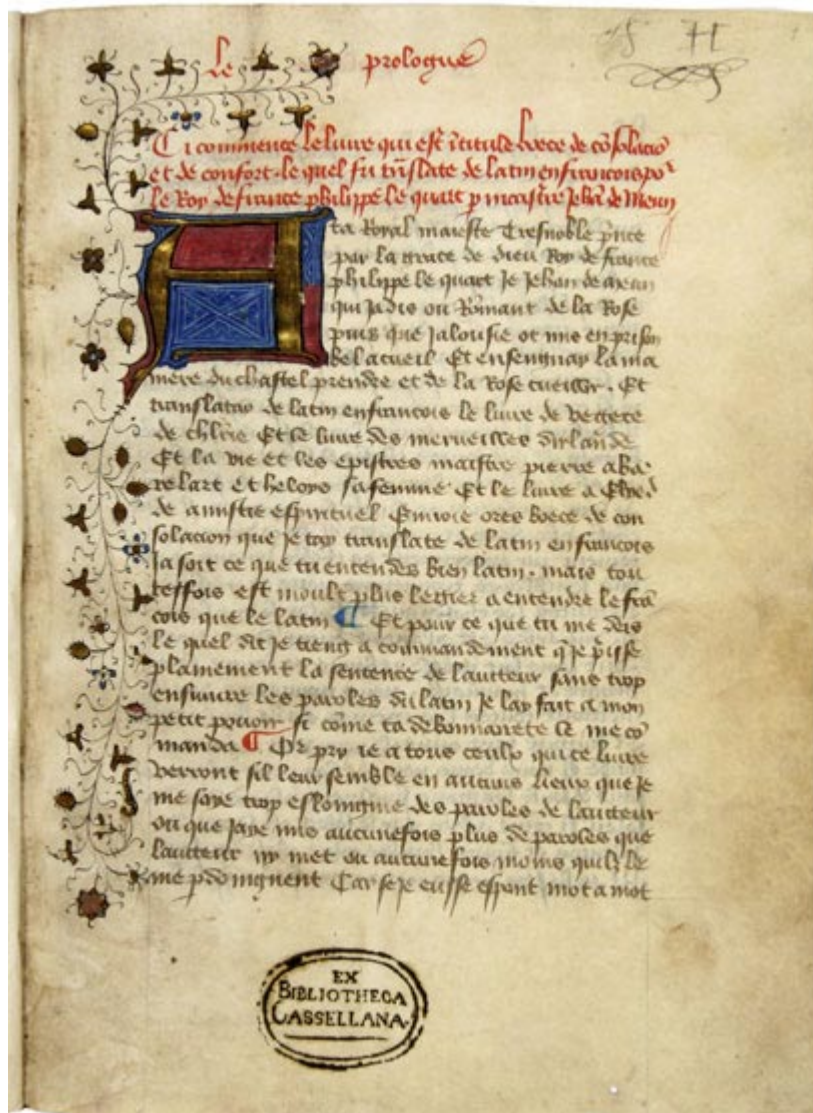 le prologue
Ci commence le livre qui est ītitule boece de cōsolaciō
et de confort. le quel fu trāslate de latin en francois por
le Roy de france philippe le quart p maistre Jehā de Meun
A ta Royal maieste Tresnoble prīce
par la grace de dieu Roy de france
philippe le quart Je Jehan de Meun
qui jadis ou Rōmant de la Rose
puis que Jalousie ot mis en prison
bel acueil Et enseignay la ma
niere du chastel prendre et de la Rose cueillir. Et
translatay de latin en francois le livre de vegece
de chlrie Et le livre des merveilles dirlāde
Et la vie et les epistres maistre pierre aba
relart et heloys sa femme Et le livre a Elred
de amistie espirituel Envoie ores boece de con
solacion que je tay translate de latin en francois
Ja soit ce que tu entendes bien latin. mais tou
teffois est moult plus legier a entendre le frā
cois que le latin ¶ Et pour ce que tu me deis
le quel dit je tieng a commandement q̄ je p̄isse
plainement la sentence de laucteur sans trop
ensuivre les paroles du latin Je lay fait a mon
petit povoir si cōme ta debonnairete le me cō
manda ¶ Or pry ie a tous ceulx qui ce livre
verront sil leur semble en aucuns lieux que je
me soye trop eslongnie des paroles de laucteur
ou que jaye mis aucunefois plus de paroles que
laucteur ny met ou aucunefois moins quilz le
me pdoingnent Car se je eusse espont mot a mot
EX
BIBLIOTHECA
CASSELLANA.